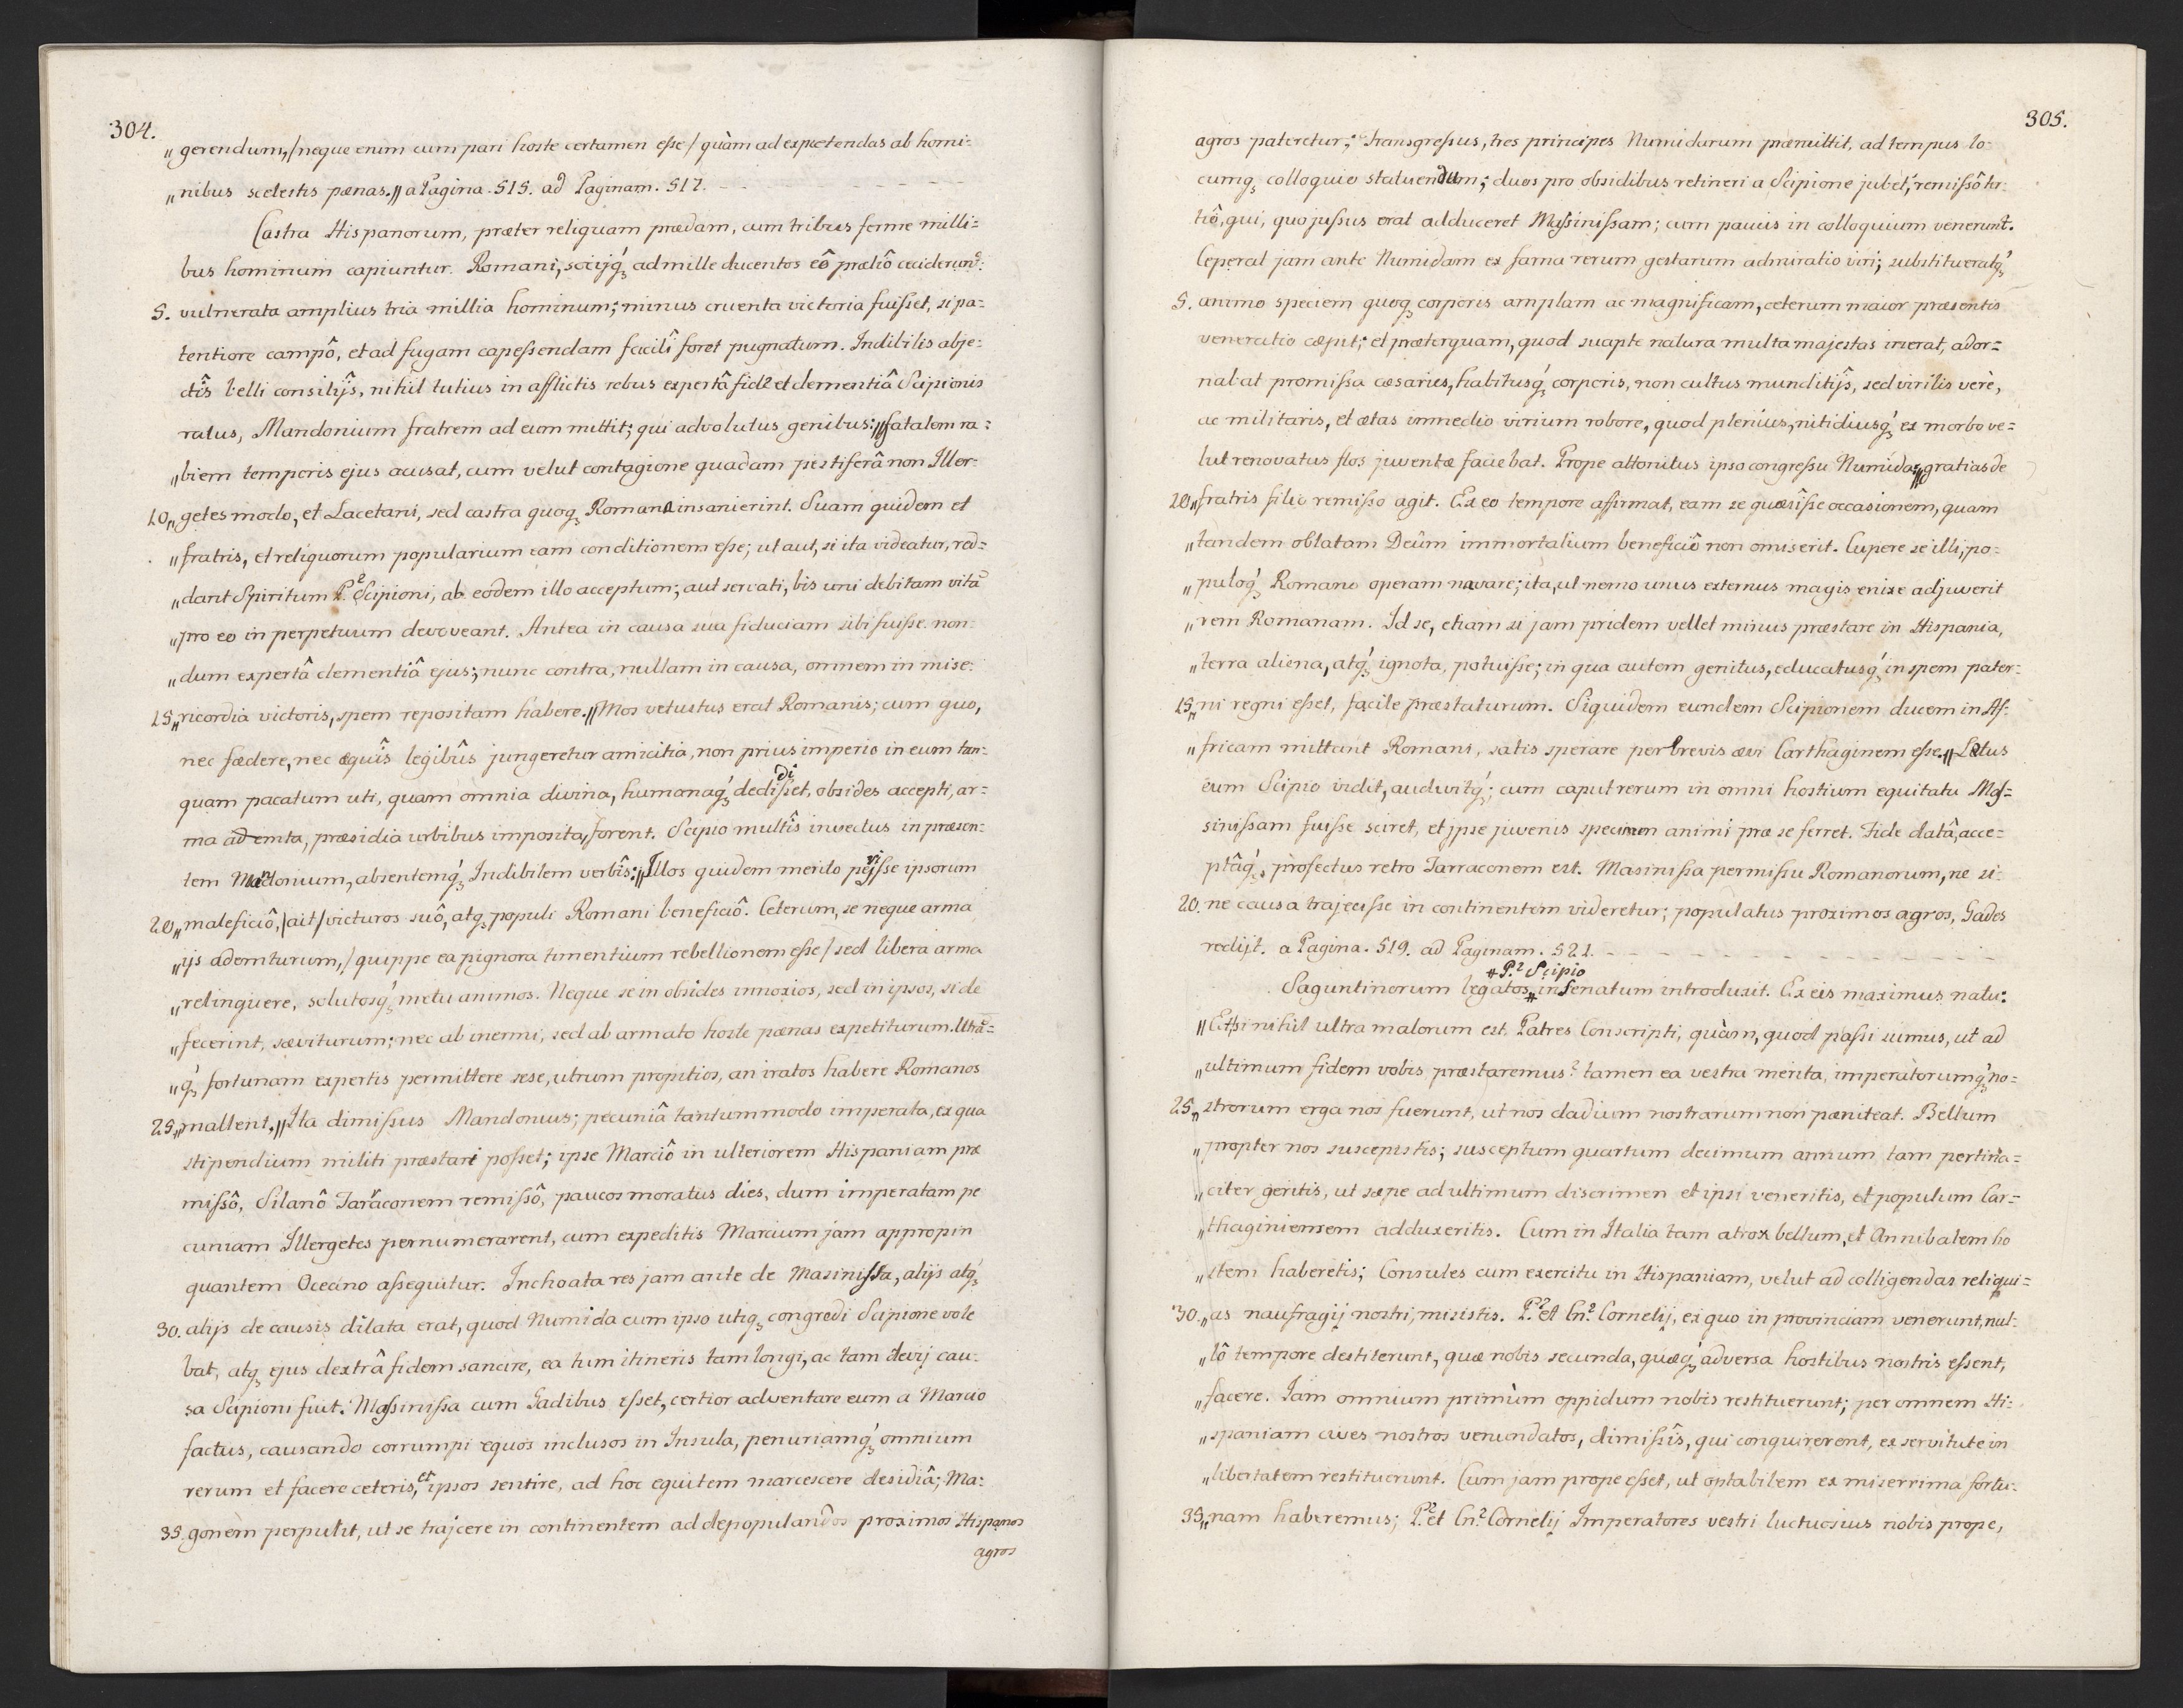 304.
„gerendum,/neque enim cum pari hoste certamen esse/ quàm ad expetendas ab homi-
„nibus scelestis pænas.„ a Pagina. 515. ad Paginam. 517.
Castra Hispanorum, præter reliquam prædam, cum tribus ferme milli-
bus hominum capiuntur. Romani, socijq́; ad mille ducentos eô præliô ceciderunt:
5. vulnerata amplius tria millia hominum; minus cruenta victoria fuisset, si pa-
tentiore campô, et ad fugam capessendam facili foret pugnatum. Indibilis abje-
ctîs belli consilijs, nihil tutius in afflictis rebus expertâ fide et clementiâ Scipionis
ratus, Mandonium fratrem ad eum mittit; qui advolutus genibus:„fatalem ra-
„biem temporis ejus acusat, cum velut contagione quadam pestiferâ non Iller-
10.„getes modo, et Lacetani, sed castra quoq; Romana insanierint. Suam quidem et
„fratris, et reliquorum popularium eam conditionem esse; ut aut, si ita videatur, red-
„dant Spiritum P. Scipioni, ab eodem illo acceptum; aut servati, bis uni debitam vitã
„pro eo in perpetuum devoveant. Antea in causa sua fiduciam sibi fuisse non-
„dum expertâ clementiâ ejus; nunc contra, nullam in causa, omnem in mise-
15.„ricordia victoris, spem repositam habere.„ Mos vetustus erat Romanis; cum quo,
nec fædere, nec æquîs legibûs jungeretur amicitia, non prius imperio in eum tan-
quam pacatum uti, quam omnia divina, humanaq́; dedidisset, obsides accepti, ar-
ma ademta, præsidia urbibus imposita, forent. Scipio multîs invectus in præsen-
tem Mandonium, absentemq́; Indibilem verbîs:„Illos quidem merito perijsse ipsorum
20.„maleficiô,/ait/victuros suô, atq; populi Romani beneficiô. Ceterum, se neque arma
„ijs ademturum,/quippe ea pignora timentium rebellionem esse/ sed libera arma
„relinquere, solutosq́; metu animos. Neque se in obsides innoxios, sed in ipsos, si de
„fecerint, sæviturum; nec ab inermi, sed ab armato hoste pænas expetiturum. Utrã-
„q́; fortunam expertis permittere sese, utrum propitios, an iratos habere Romanos
25.„mallent.„ Ita dimissus Mandonius; pecuniâ tantummodo imperata, ex qua
stipendium militi præstari posset; ipse Marciô in ulteriorem Hispaniam præ
missô, Silanô Tarraconem remissô, paucos moratus dies, dum imperatam pe
cuniam Illergetes pernumerarent, cum expeditis Marcium jam appropin
quantem Oceáno assequitur. Inchoata res jam ante de Masinissa, alijs atq́;
30. alijs de causis dilata erat, quod Numida cum ipso utiq; congredi Scipione vole
bat, atq; ejus dextrâ fidem sancire, ea tum itineris tam longi, ac tam devij cau-
sa Scipioni fuit. Massinissa cum Gadibus esset, certior adventare eum a Marcio
factus, causando corrumpi equos inclusos in Insula, penuriamq́; omnium
rerum et facere ceteris, et ipsos sentire, ad hoc equitem marcescere desidiâ; Ma-
35. gonem perpulit, ut se trajcere in continentem ad depopulandos proximos Hispanos
agros
305.
agros pateretur; transgressus, tres principes Numidarum præmittit, ad tempus lo-
cumq; colloquio statuendum; duos pro obsidibus retineri a Scipione jubet; remissô ter-
tiô, qui, quo jussus erat adduceret Massinissam; cum paucis in colloquium venerunt.
Ceperat jam ante Numidam ex fama rerum gestarum admiratio viri; substitueratq́;
5. animo speciem quoq; corporis amplam ac magnificam, ceterum maior præsentis
veneratio cæpit; et præterquam, quod suapte natura multa majestas inerat, ador-
nabat promissa cæsaries, habitusq́; corporis, non cultus munditijs, sed virilis verè,
ac militaris, et ætas in medio virium robore, quod plenius, nitidiusq́; ex morbo ve-
lut renovatus flos juventæ faciebat. Prope attonitus ipso congressu Numida:„gratias de
10.„fratris filio remisso agit. Ex eo tempore affirmat, eam se quæsîsse occasionem, quam
„tandem oblatam Deûm immortalium beneficiô non omiserit. Cupere se illi, po-
„puloq́; Romano operam navare; ita, ut nemo unus externus magis enixe adjuverit
„rem Romanam. Id se, etiam si jam pridem vellet minus præstare in Hispania,
„terra aliena, atq́; ignota, potuisse; in qua autem genitus, educatusq́; in spem pater-
15.„ni regni esset, facile præstaturum. Siquidem eundem Scipionem ducem in Af-
„fricam mittant Romani, satis sperare perbrevis ævi Carthaginem esse.„ Lætus
eum Scipio vidit, audivitq́; cum caput rerum in omni hostium equitatu Mas-
sinissam fuisse sciret, et ipse juvenis specimen animi præ se ferret. Fide datâ, acce-
ptâq́; profectus retro Tarraconem est. Masinissa permissu Romanorum, ne si-
20. ne causa trajecisse in continentem videretur; populatus proximos agros, Gades
redijt. a Pagina. 519. ad Paginam. 521.
# P. Scipio
Saguntinorum legatos # in Senatum introduxit. Ex eis maximus natu:
„Etsi nihil ultra malorum est. Patres Conscripti, quàm, quod passi sumus, ut ad
„ultimum fidem vobis præstaremus? tamen ea vestra merita, imperatorumq́; no-
25.„strorum erga nos fuerunt, ut nos cladium nostrarum non pæniteat. Bellum
„propter nos suscepistis; susceptum quartum decimum annum tam pertina-
„citer geritis, ut sæpe ad ultimum discrimen et ipsi veneritis, et populum Car-
„thaginiensem adduxeritis. Cum in Italia tam atrox bellum, et Annibalem ho
„stem haberetis; Consules cum exercitu in Hispaniam, velut ad colligendas reliqui-
30.„as naufragij nostri, misistis. P. et Cn. Cornelij, ex quo in provinciam venerunt, nul-
„lô tempore destiterunt, quæ nobis secunda, quæq́; adversa hostibus nostris essent,
„facere. Iam omnium primùm oppidum nobis restituerunt; per omnem Hi-
„spaniam cives nostros venundatos, dimissîs, qui conquirerent, ex servitute in
„libertatem restituerunt. Cum jam prope esset, ut optabilem ex miserrima fortu-
35.„nam haberemus; P. et Cn. Cornelij Imperatores vestri luctuosius nobis prope,